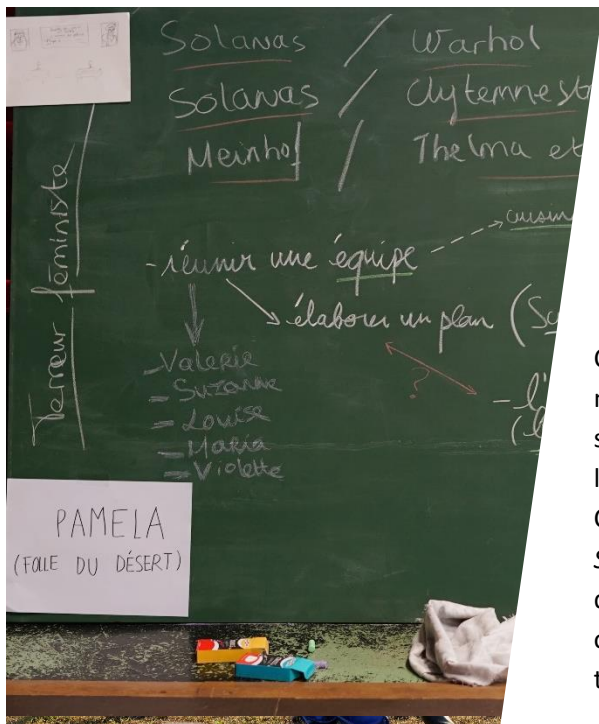 Solanas / Warhol
Solanas /
Meinhof / Thelma et
Terreur féministe
- réunir une équipe
élaborer un plan (
?
- Valerie
- Suzanne
- Louise
- Maria
- Violette
PAMELA
(FOLLE DU DÉSERT)